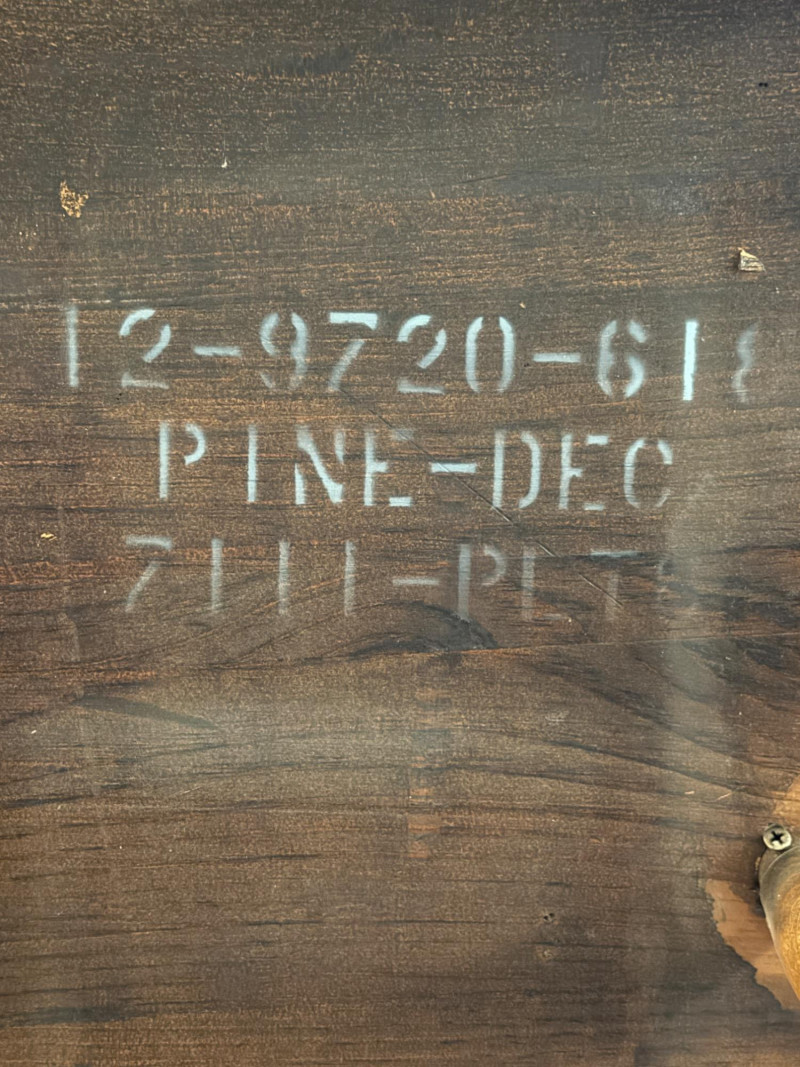 12-9720-618
PINE-DEC
7111-PLT